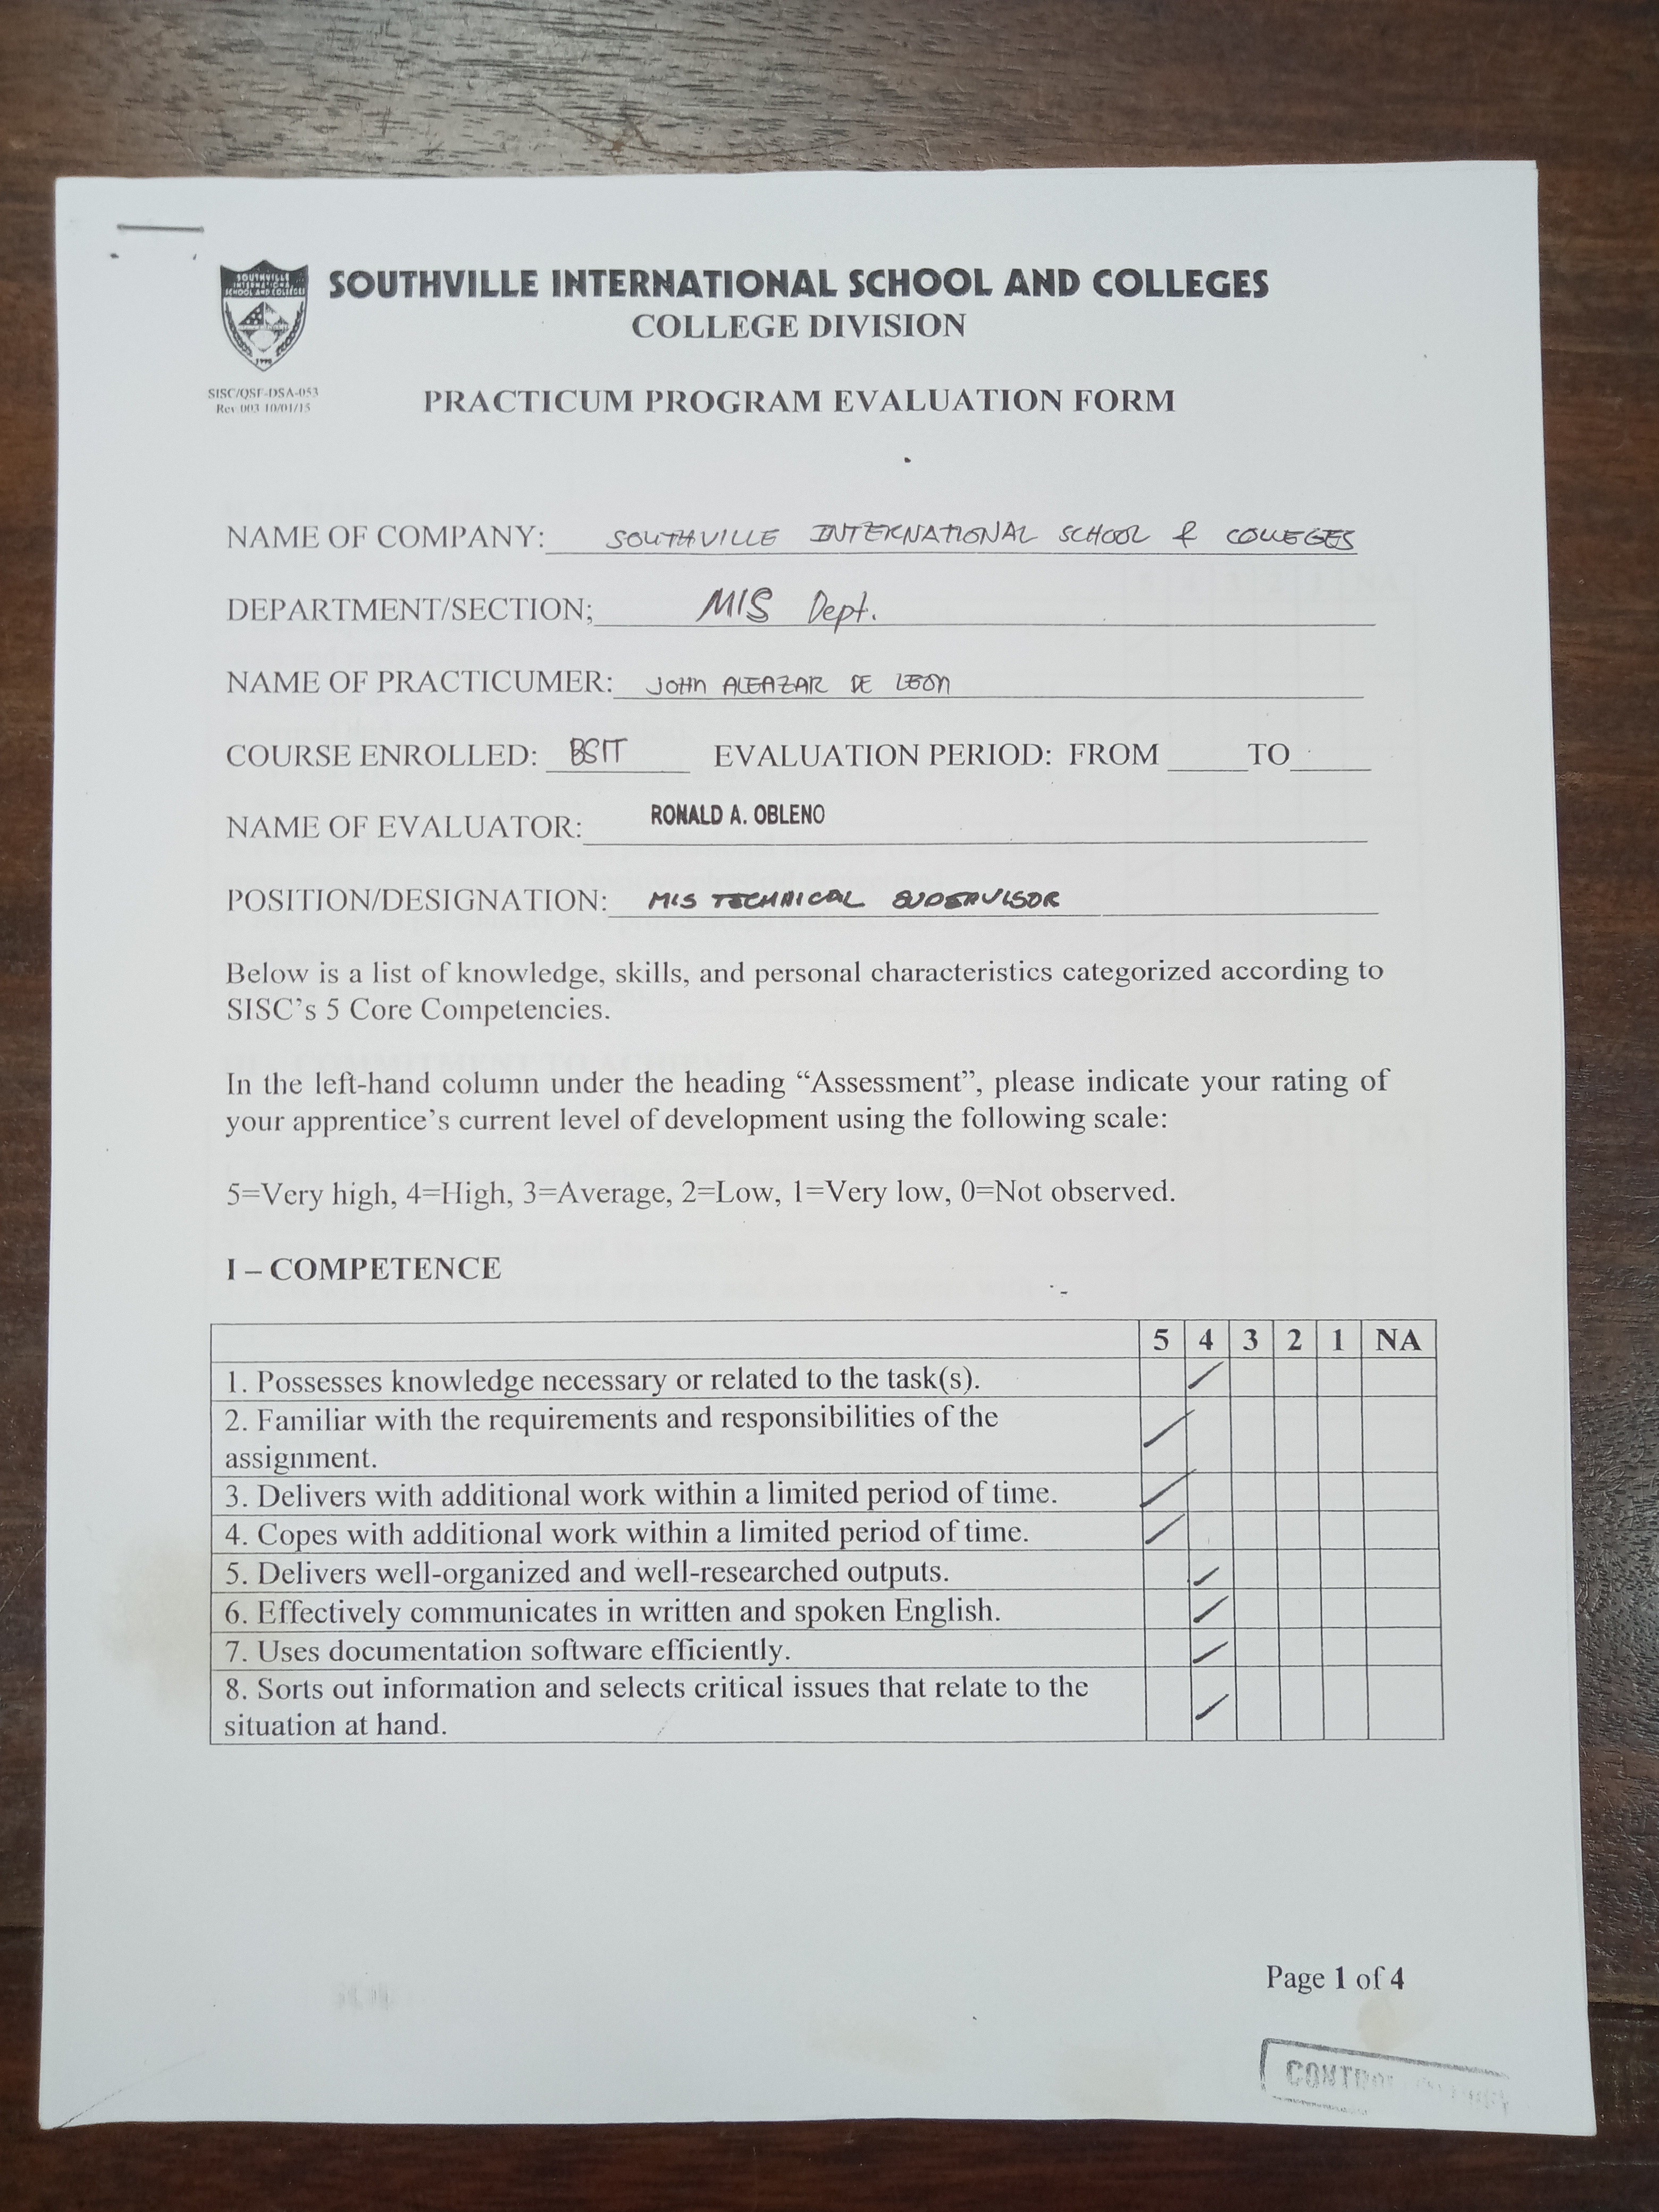 SOUTHVILLE
INTERNATIONAL
SCHOOL AND COLLEGES
SOUTHVILLE INTERNATIONAL SCHOOL AND COLLEGES
COLLEGE DIVISION
SISC/QSF-DSA-053
Rev 003 10/01/15
PRACTICUM PROGRAM EVALUATION FORM
NAME OF COMPANY: SOUTHVILLE INTERNATIONAL SCHOOL & COLLEGES
DEPARTMENT/SECTION; MIS Dept.
NAME OF PRACTICUMER: JOHN ALEAZAR DE LEON
COURSE ENROLLED: BSIT EVALUATION PERIOD: FROM ____ TO ____
NAME OF EVALUATOR: RONALD A. OBLENO
POSITION/DESIGNATION: MIS TECHNICAL SUPERVISOR
Below is a list of knowledge, skills, and personal characteristics categorized according to
SISC's 5 Core Competencies.
In the left-hand column under the heading “Assessment”, please indicate your rating of
your apprentice's current level of development using the following scale:
5=Very high, 4=High, 3=Average, 2=Low, 1=Very low, 0=Not observed.
I – COMPETENCE
5 4 3 2 1 NA
1. Possesses knowledge necessary or related to the task(s).
2. Familiar with the requirements and responsibilities of the
assignment.
3. Delivers with additional work within a limited period of time.
4. Copes with additional work within a limited period of time.
5. Delivers well-organized and well-researched outputs.
6. Effectively communicates in written and spoken English.
7. Uses documentation software efficiently.
8. Sorts out information and selects critical issues that relate to the
situation at hand.
Page 1 of 4